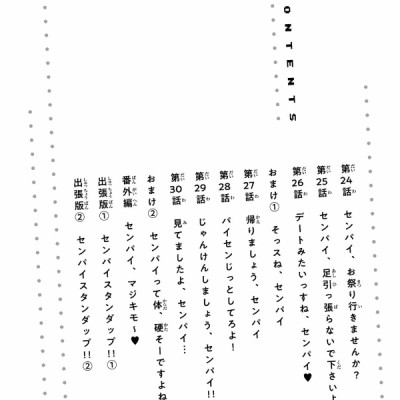 CONTENTS
第24話 センパイ、お祭り行きませんか?
第25話 センパイ、足引っ張らないで下さいよ
第26話 デートみたいっすね、センパイ♥
おまけ① そっスね、センパイ
第27話 帰りましょう、センパイ
第28話 パイセンじっとしてろよ!
第29話 じゃんけんしましょう、センパイ!!
第30話 見てましたよ、センパイ…
おまけ② センパイって体、硬そーですよね
番外編 センパイ、マジキモ〜♥
出張版① センパイスタンダップ!!①
出張版② センパイスタンダップ!!②